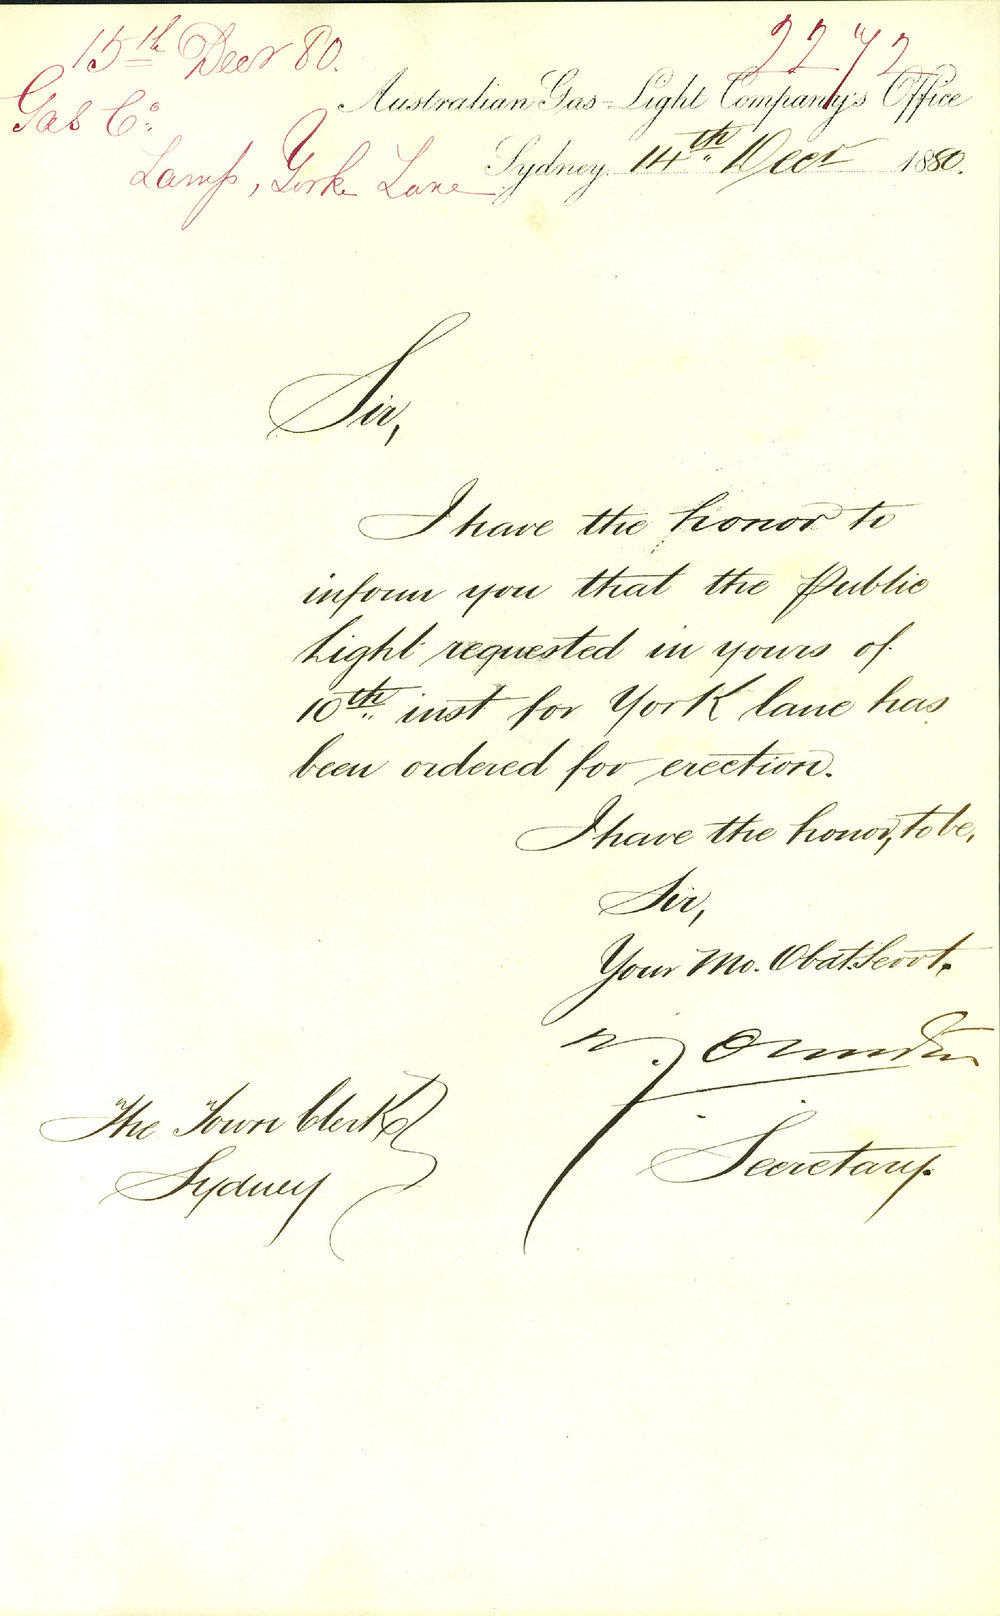 15th Decr 80.
2272
Gas Co:
Lamp, York Lane
Australian Gas-Light Company's Office
Sydney 14th Decr 1880.
Sir,
I have the honor to
inform you that the Public
Light requested in yours of
10th inst for York lane has
been ordered for erection.
I have the honor, to be,
Sir,
Your Mo. Obdt. Servt.
Secretary.
The Town Clerk
Sydney